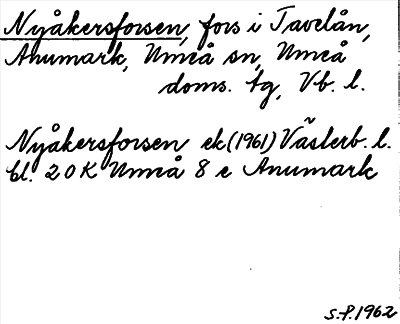 Nyåkersforsen, fors i Tavelån,
Anumark, Umeå sn, Umeå
doms. tg, Vb. l.
Nyåkersforsen ek (1961) Västerb. l.
bl. 20 K Umeå 8 e Anumark
S.P. 1962